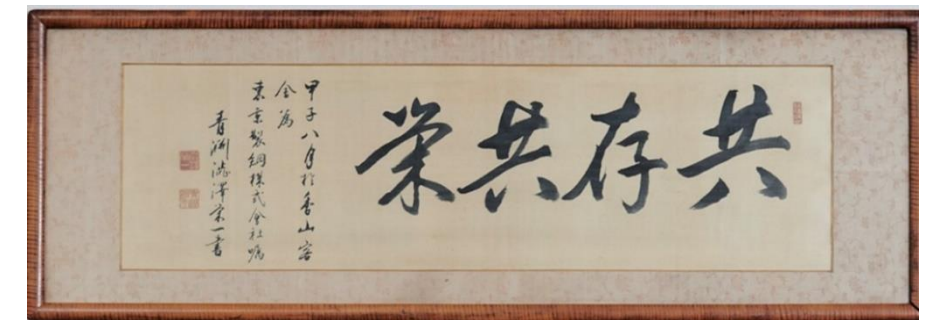 共存共栄
甲子八月於香山客
舎為
東京製綱株式会社嘱
青淵渋澤栄一書